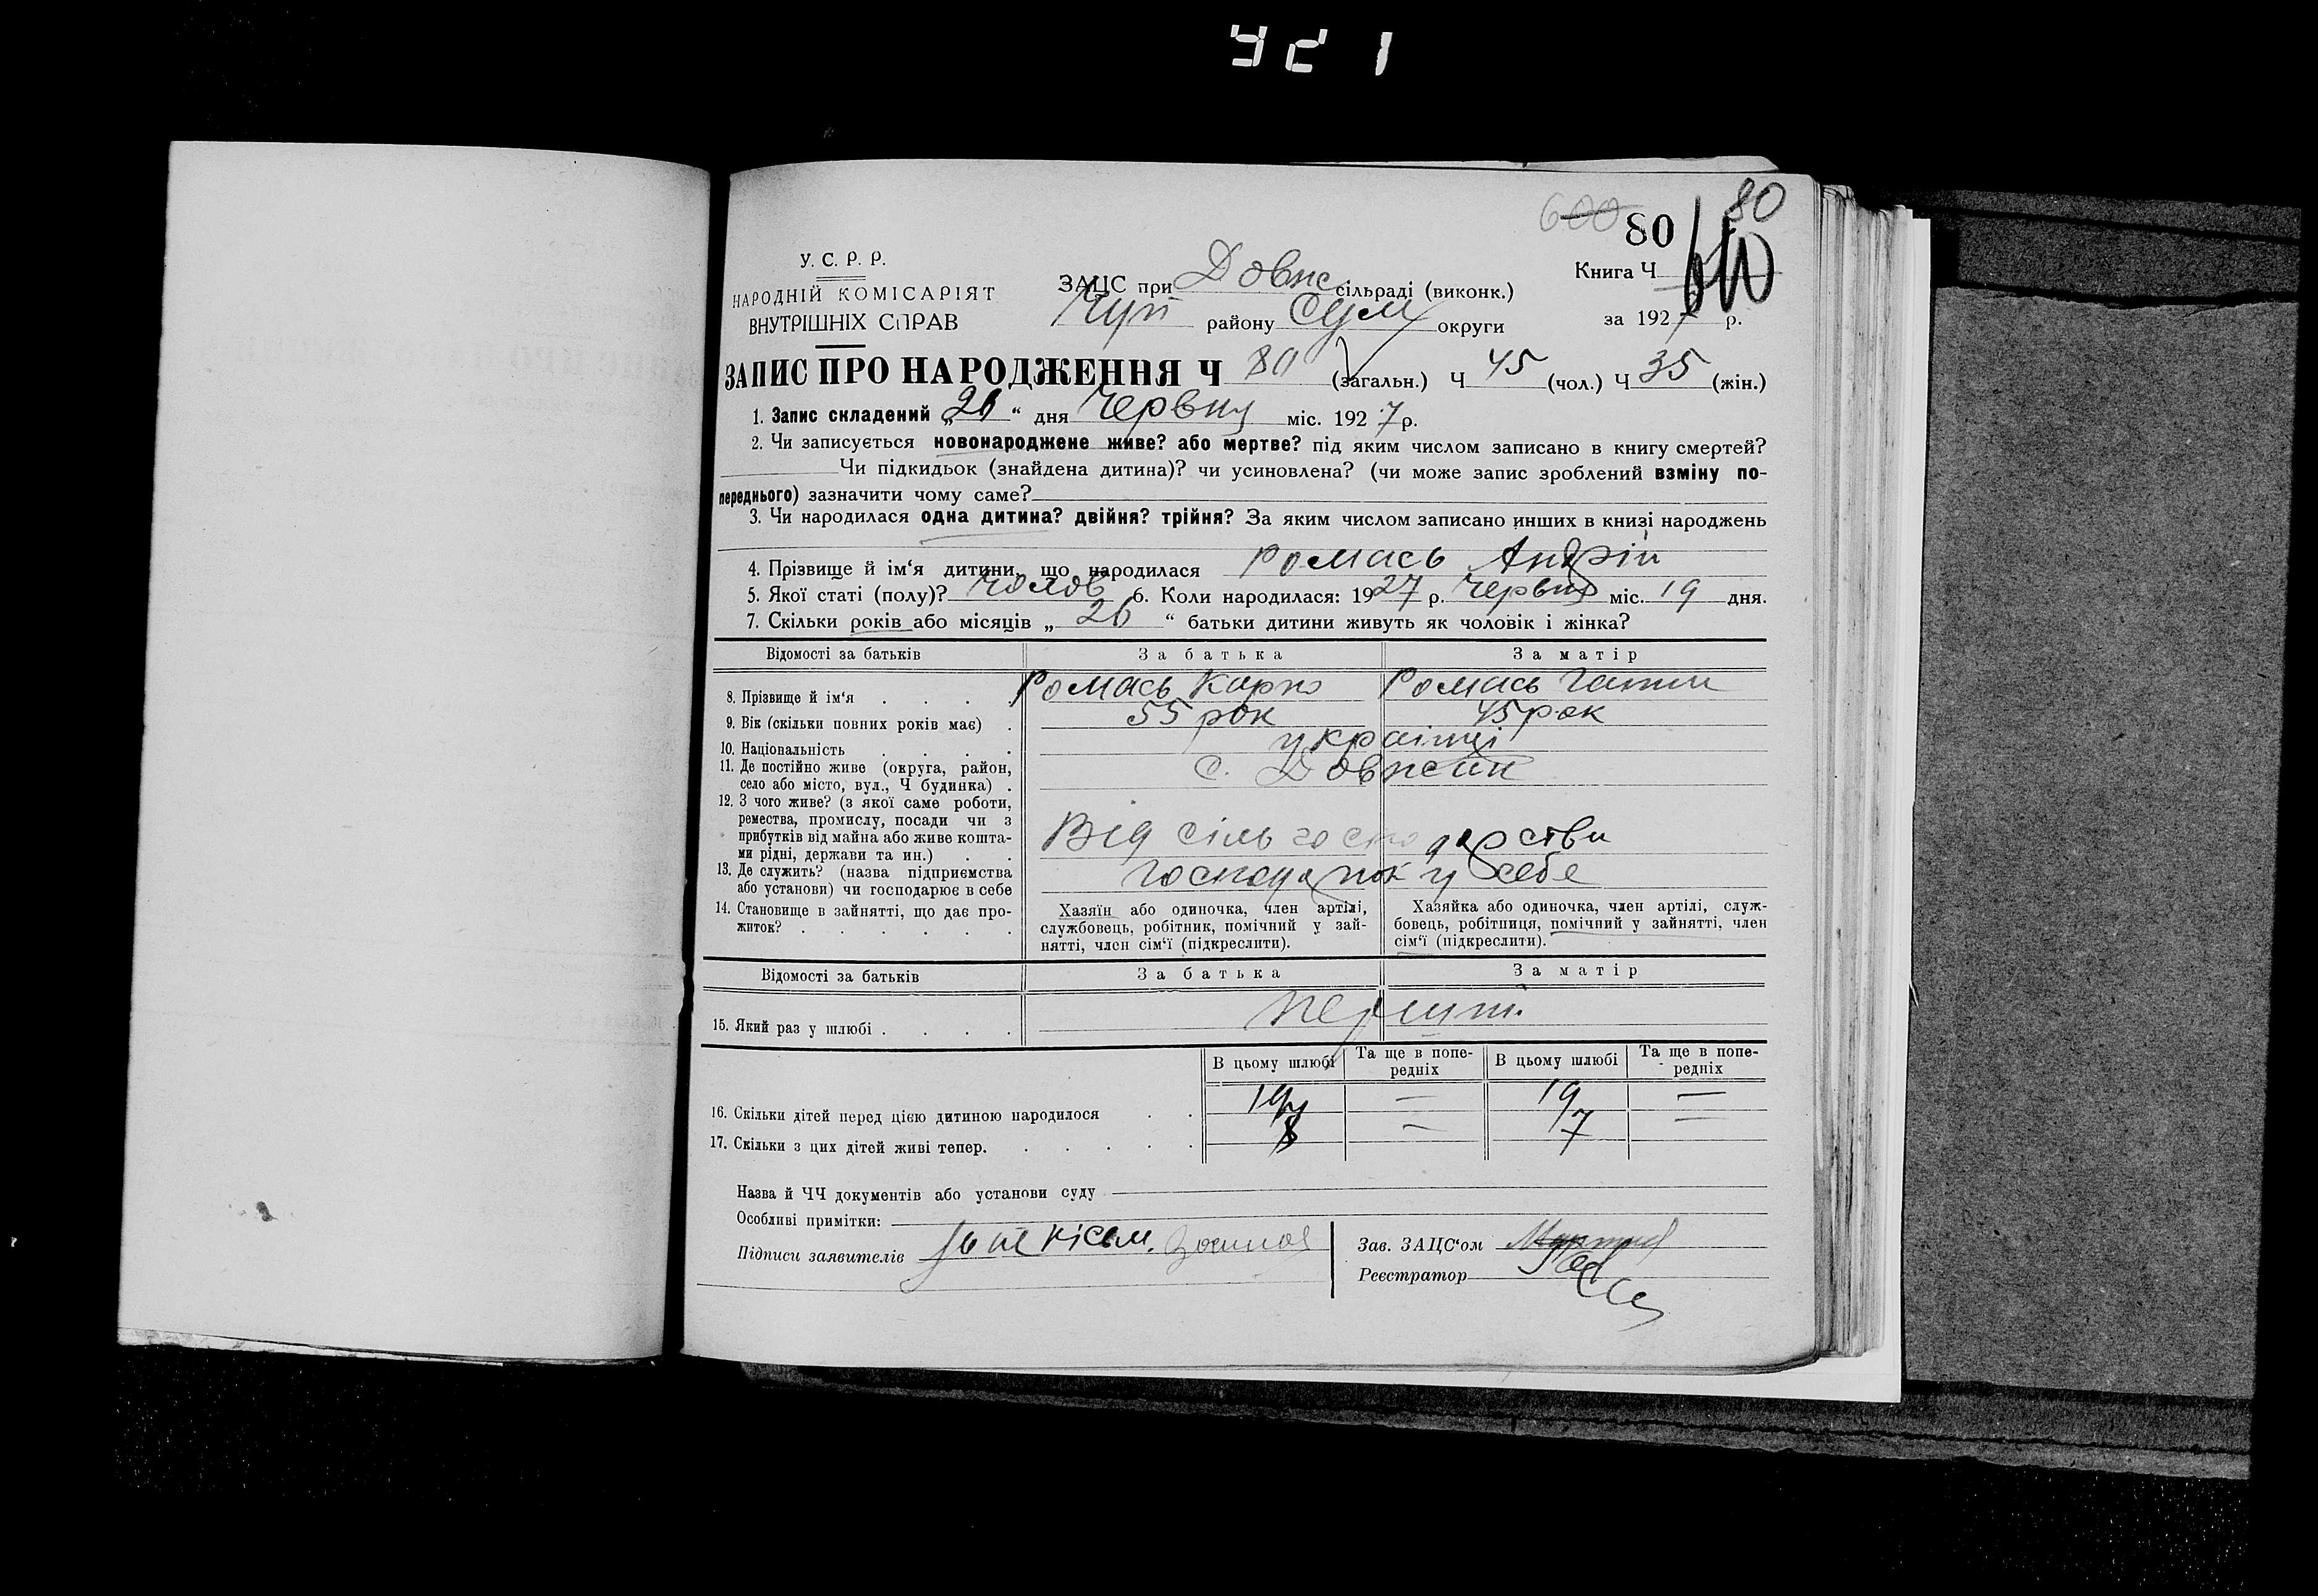 УС 1
600 80 80
У. С. Р. Р.
НАРОДНІЙ КОМІСАРІЯТ
ВНУТРІШНІХ СПРАВ
ЗАЦС при Довж сільраді (виконк.)
Чуп району Сум округи
Книга Ч
за 1927 р.
ЗАПИС ПРО НАРОДЖЕННЯ Ч 80 (загальн.) Ч 45 (чол.) Ч 35 (жін.)
1. Запис складений „26“ дня Червня міс. 1927 р.
2. Чи записується новонароджене живе? або мертве? під яким числом записано в книгу смертей?
Чи підкидьок (знайдена дитина)? чи усиновлена? (чи може запис зроблений взміну по-
переднього) зазначити чому саме?
3. Чи народилася одна дитина? двійня? трійня? За яким числом записано инших в книзі народжень
4. Прізвище й ім‘я дитини, що народилася Ромась Андрій
5. Якої статі (полу)? Чолов 6. Коли народилася: 1927 р. Червня міс. 19 дня.
7. Скільки років або місяців „ 26 “ батьки дитини живуть як чоловік і жінка?
Відомості за батьків За батька За матір
8. Прізвище й ім‘я . . . . Ромась Карпо Ромась
9. Вік (скільки повних років має) . 55 рок 45 рок
10. Національність . . . . українці
11. Де постійно живе (округа, район,
село або місто, вул., Ч будинка) . с. Довжик
12. З чого живе? (з якої саме роботи,
ремества, промислу, посади чи з
прибутків від майна або живе кошта-
ми рідні, держави та ин.) . . Від сільгосподарства
13. Де служить? (назва підприємства
або установи) чи господарює в себе у себе
14. Становище в зайнятті, що дає про-
житок? . . . . . .
Хазяїн або одиночка, член артілі,
службовець, робітник, помічний у зай-
нятті, член сім‘ї (підкреслити).
Хазяйка або одиночка, член артілі, служ-
бовець, робітниця, помічний у зайнятті, член
сім‘ї (підкреслити).
Відомості за батьків За батька За матір
15. Який раз у шлюбі . . . .
В цьому шлюбі Та ще в попе-
редніх В цьому шлюбі Та ще в попе-
редніх
16. Скільки дітей перед цією дитиною народилося . . 19 — 19 —
17. Скільки з цих дітей живі тепер. . . . . . — 7 —
Назва й ЧЧ документів або установи суду
Особливі примітки:
Підписи заявителів
Зав. ЗАЦС‘ом
Реєстратор